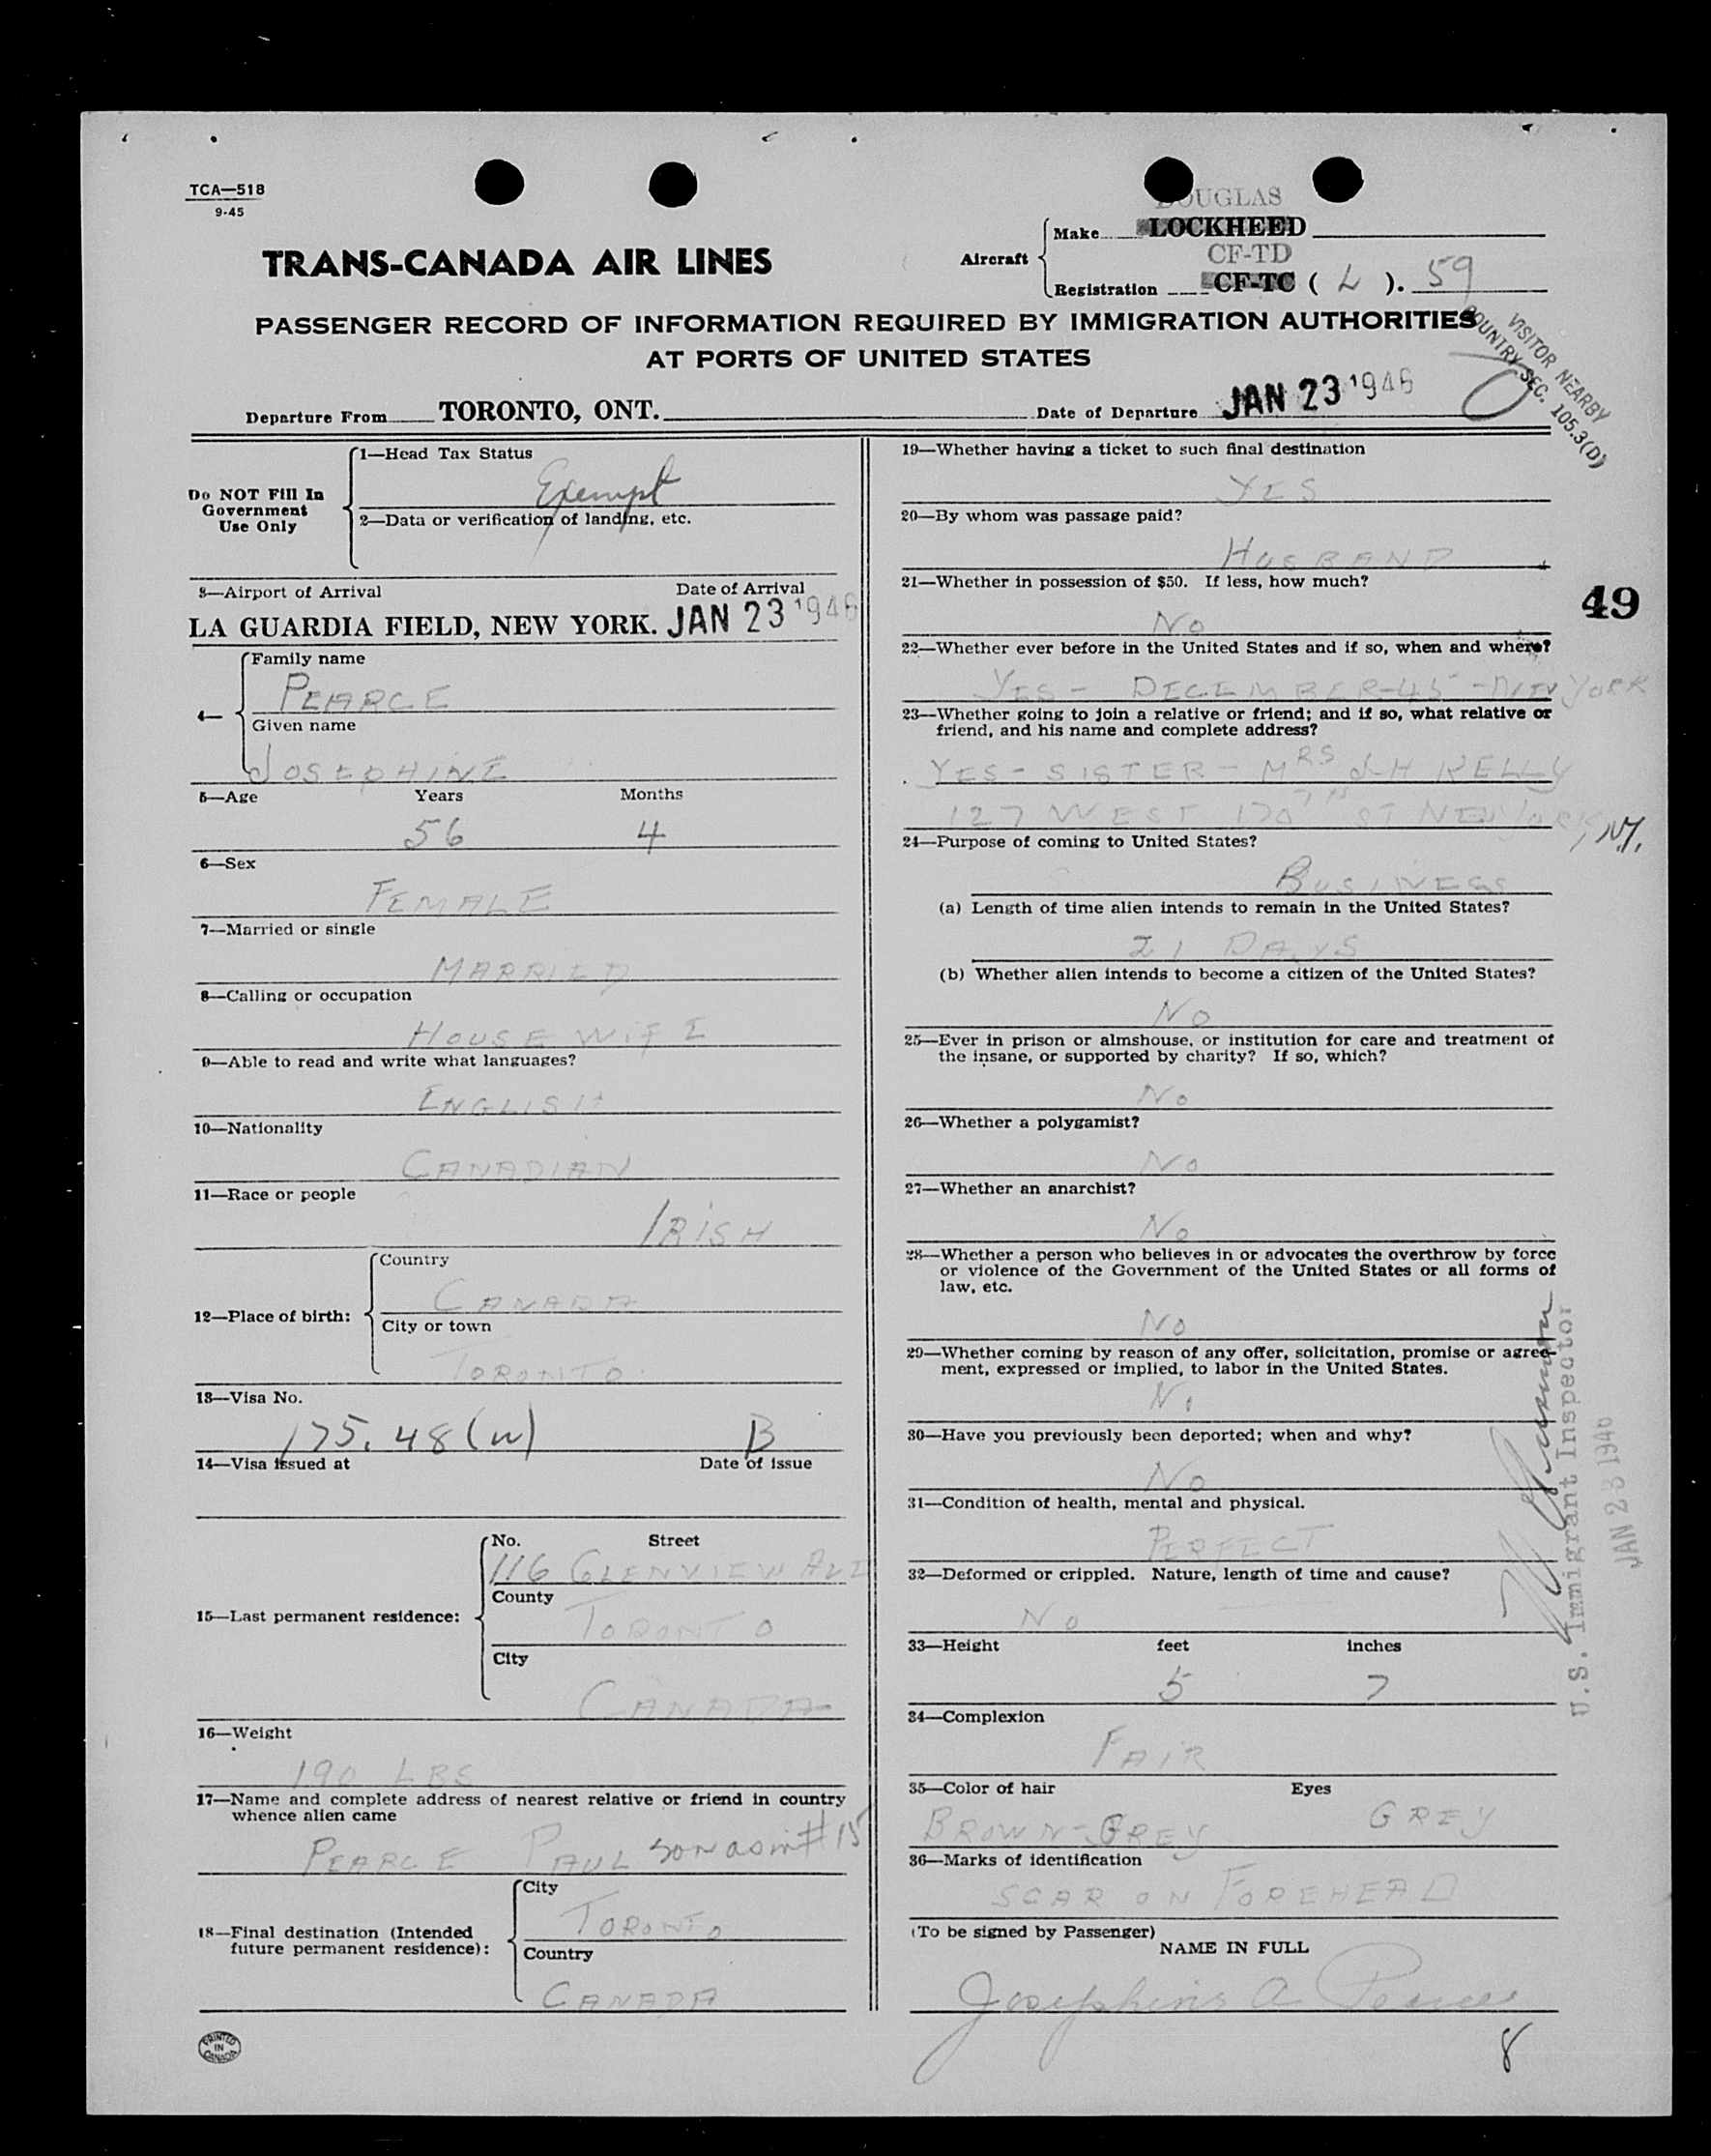 TCA—518
9-45
DOUGLAS
Aircraft
Make LOCKHEED
CF-TD
Registration CF-TC ( L ). 59
TRANS-CANADA AIR LINES
PASSENGER RECORD OF INFORMATION REQUIRED BY IMMIGRATION AUTHORITIES
AT PORTS OF UNITED STATES
VISITOR NEARBY
COUNTRY SEC. 105.3(D)
Departure From TORONTO, ONT. Date of Departure JAN 23 1946
Do NOT Fill In
Government
Use Only
1—Head Tax Status
Exempt
2—Data or verification of landing, etc.
3—Airport of Arrival Date of Arrival
LA GUARDIA FIELD, NEW YORK. JAN 23 1946
4—
Family name
PEARCE
Given name
JOSEPHINE
5—Age Years Months
56 4
6—Sex
FEMALE
7—Married or single
MARRIED
8—Calling or occupation
HOUSE WIFE
9—Able to read and write what languages?
ENGLISH
10—Nationality
CANADIAN
11—Race or people
IRISH
12—Place of birth:
Country
CANADA
City or town
TORONTO
13—Visa No.
175.48(w) B
14—Visa issued at Date of issue
15—Last permanent residence:
No. Street
116 GLENVIEW AVE
County
TORONTO
City
CANADA
16—Weight
190 LBS
17—Name and complete address of nearest relative or friend in country
whence alien came
PEARCE PAUL son as in #15
18—Final destination (Intended
future permanent residence):
City
TORONTO
Country
CANADA
PRINTED
IN
CANADA
19—Whether having a ticket to such final destination
YES
20—By whom was passage paid?
HUSBAND
21—Whether in possession of $50. If less, how much?
No
49
22—Whether ever before in the United States and if so, when and where?
YES - DECEMBER-45 - NEW YORK
23—Whether going to join a relative or friend; and if so, what relative or
friend, and his name and complete address?
YES - SISTER - MRS J-H KELLY
127 WEST 170TH ST NEW YORK, N.Y.
24—Purpose of coming to United States?
BUSINESS
(a) Length of time alien intends to remain in the United States?
21 DAYS
(b) Whether alien intends to become a citizen of the United States?
No
25—Ever in prison or almshouse, or institution for care and treatment of
the insane, or supported by charity? If so, which?
No
26—Whether a polygamist?
No
27—Whether an anarchist?
No
28—Whether a person who believes in or advocates the overthrow by force
or violence of the Government of the United States or all forms of
law, etc.
No
29—Whether coming by reason of any offer, solicitation, promise or agree-
ment, expressed or implied, to labor in the United States.
No
30—Have you previously been deported; when and why?
No
31—Condition of health, mental and physical.
PERFECT
32—Deformed or crippled. Nature, length of time and cause?
No
33—Height feet inches
5 7
34—Complexion
FAIR
35—Color of hair Eyes
BROWN-GREY GREY
36—Marks of identification
SCAR ON FOREHEAD
(To be signed by Passenger)
NAME IN FULL
Josephine A Pearce
8
U.S. Immigrant Inspector
JAN 23 1946